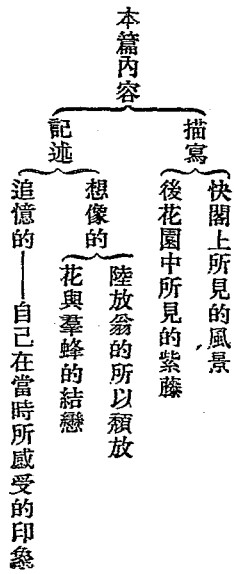 本篇內容
描寫
快閣上所見的風景
後花園中所見的紫藤
記述
想像的
陸放翁的所以頹放
花與羣蜂的結戀
追憶的——自己在當時所感受的印象